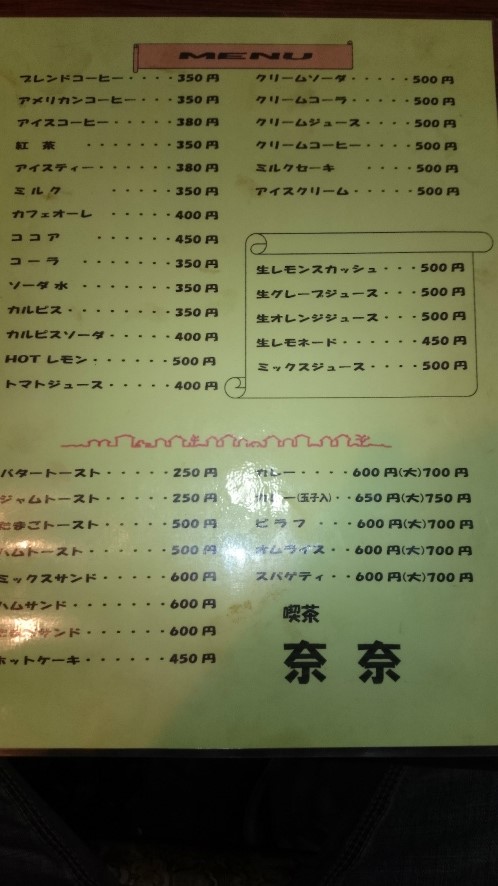 MENU
ブレンドコーヒー・・・・350円
アメリカンコーヒー・・・350円
アイスコーヒー・・・・・380円
紅 茶 ・・・・・・350円
アイスティー・・・・・・380円
ミルク ・・・・350円
カフェオーレ ・・・・・400円
ココア ・・・・・450円
コーラ ・・・・・・350円
ソーダ水 ・・・・・・350円
カルピス・・・・・・・・350円
カルピスソーダ・・・・・400円
HOTレモン・・・・・・500円
トマトジュース・・・・・400円
クリームソーダ・・・・・500円
クリームコーラ・・・・・500円
クリームジュース・・・・500円
クリームコーヒー・・・・500円
ミルクセーキ ・・・・500円
アイスクリーム・・・・・500円
生レモンスカッシュ・・・500円
生グレープジュース・・・500円
生オレンジジュース・・・500円
生レモネード・・・・・450円
ミックスジュース・・・・500円
バタートースト・・・・・250円
ジャムトースト・・・・・250円
たまごトースト・・・・・500円
ハムトースト・・・・・・500円
ミックスサンド・・・・・600円
ハムサンド・・・・・・・600円
サンド・・・・・・600円
ホットケーキ・・・・・・450円
カレー・・・・600円(大)700円
カレー(玉子入)・・650円(大)750円
ピラフ ・・・600円(大)700円
オムライス・・600円(大)700円
スパゲティ・・600円(大)700円
喫茶
奈奈